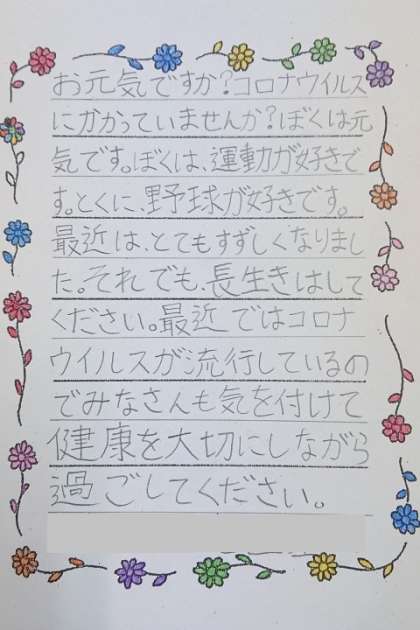 お元気ですか?コロナウイルス
にかかっていませんか?ぼくは元
気です。ぼくは、運動が好きで
す。とくに、野球が好きです。
最近は、とてもすずしくなりまし
た。それでも、長生きはして
ください。最近ではコロナ
ウイルスが流行しているの
でみなさんも気を付けて
健康を大切にしながら
過ごしてください。